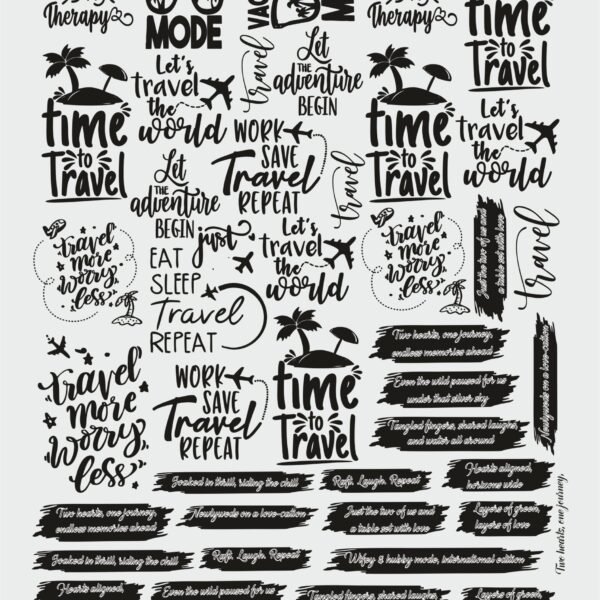 Therapy
MODE
VAC
M
Therapy
time
to
Travel
Let's
travel
the
world
travel
Let
THE
adventure
BEGIN
time
to
Travel
WORK
SAVE
Travel
REPEAT
time
to
Travel
Let's
travel
the
world
Let
THE
adventure
BEGIN
travel
travel
more
worry
less
just
EAT
SLEEP
Travel
REPEAT
Let's
travel
the
world
travel
more
worry
less
Just the two of us and
a table set with love
travel
travel
more
worry
less
WORK
SAVE
Travel
REPEAT
time
to
Travel
Two hearts, one journey,
endless memories ahead
Even the wild paused for us
under that silver sky
Tangled fingers, shared laughs,
and water all around
Newlyweds on a love-cation
Soaked in thrill, riding the chill
Raft. Laugh. Repeat
Hearts aligned,
horizons wide
Two hearts, one journey,
endless memories ahead
Newlyweds on a love-cation
Just the two of us and
a table set with love
Layers of green,
layers of love
Two hearts, one journey,
Soaked in thrill, riding the chill
Raft. Laugh. Repeat
Wifey & hubby mode, international edition
Hearts aligned,
Even the wild paused for us
Tangled fingers, shared laughs,
Layers of green,